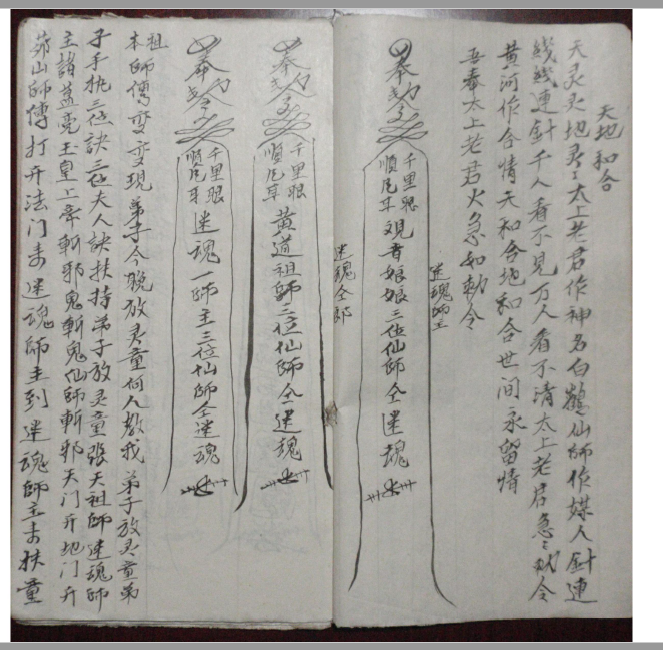 天地和合
天灵灵地灵灵太上老君作神名白鶴仙師作媒人針連
綫綫連針千人看不見万人看不清太上老君急急敕令
黄河作合情天和合地和合世间永留情
吾奉太上老君火急如勅令
迷魂師主
奉勅令
千里眼
順风耳
观音娘娘三位仙師仝迷魂
迷魂仝郎
奉勅令
千里眼
順风耳
黄道祖師三位仙師仝迷魂
奉勅令
千里眼
順风耳
迷魂一師主三位仙師仝迷魂
祖
本師傅变变現弟子今晚放灵童何人教我弟子放灵童弟
子手执三位訣三位夫人訣扶持弟子放灵童張天祖師迷魂師
主諸葛亮玉皇上帝斬邪鬼斬鬼仙師斬邪天门开地门开
茆山師傅打开法门来迷魂師主到迷魂師主来扶童